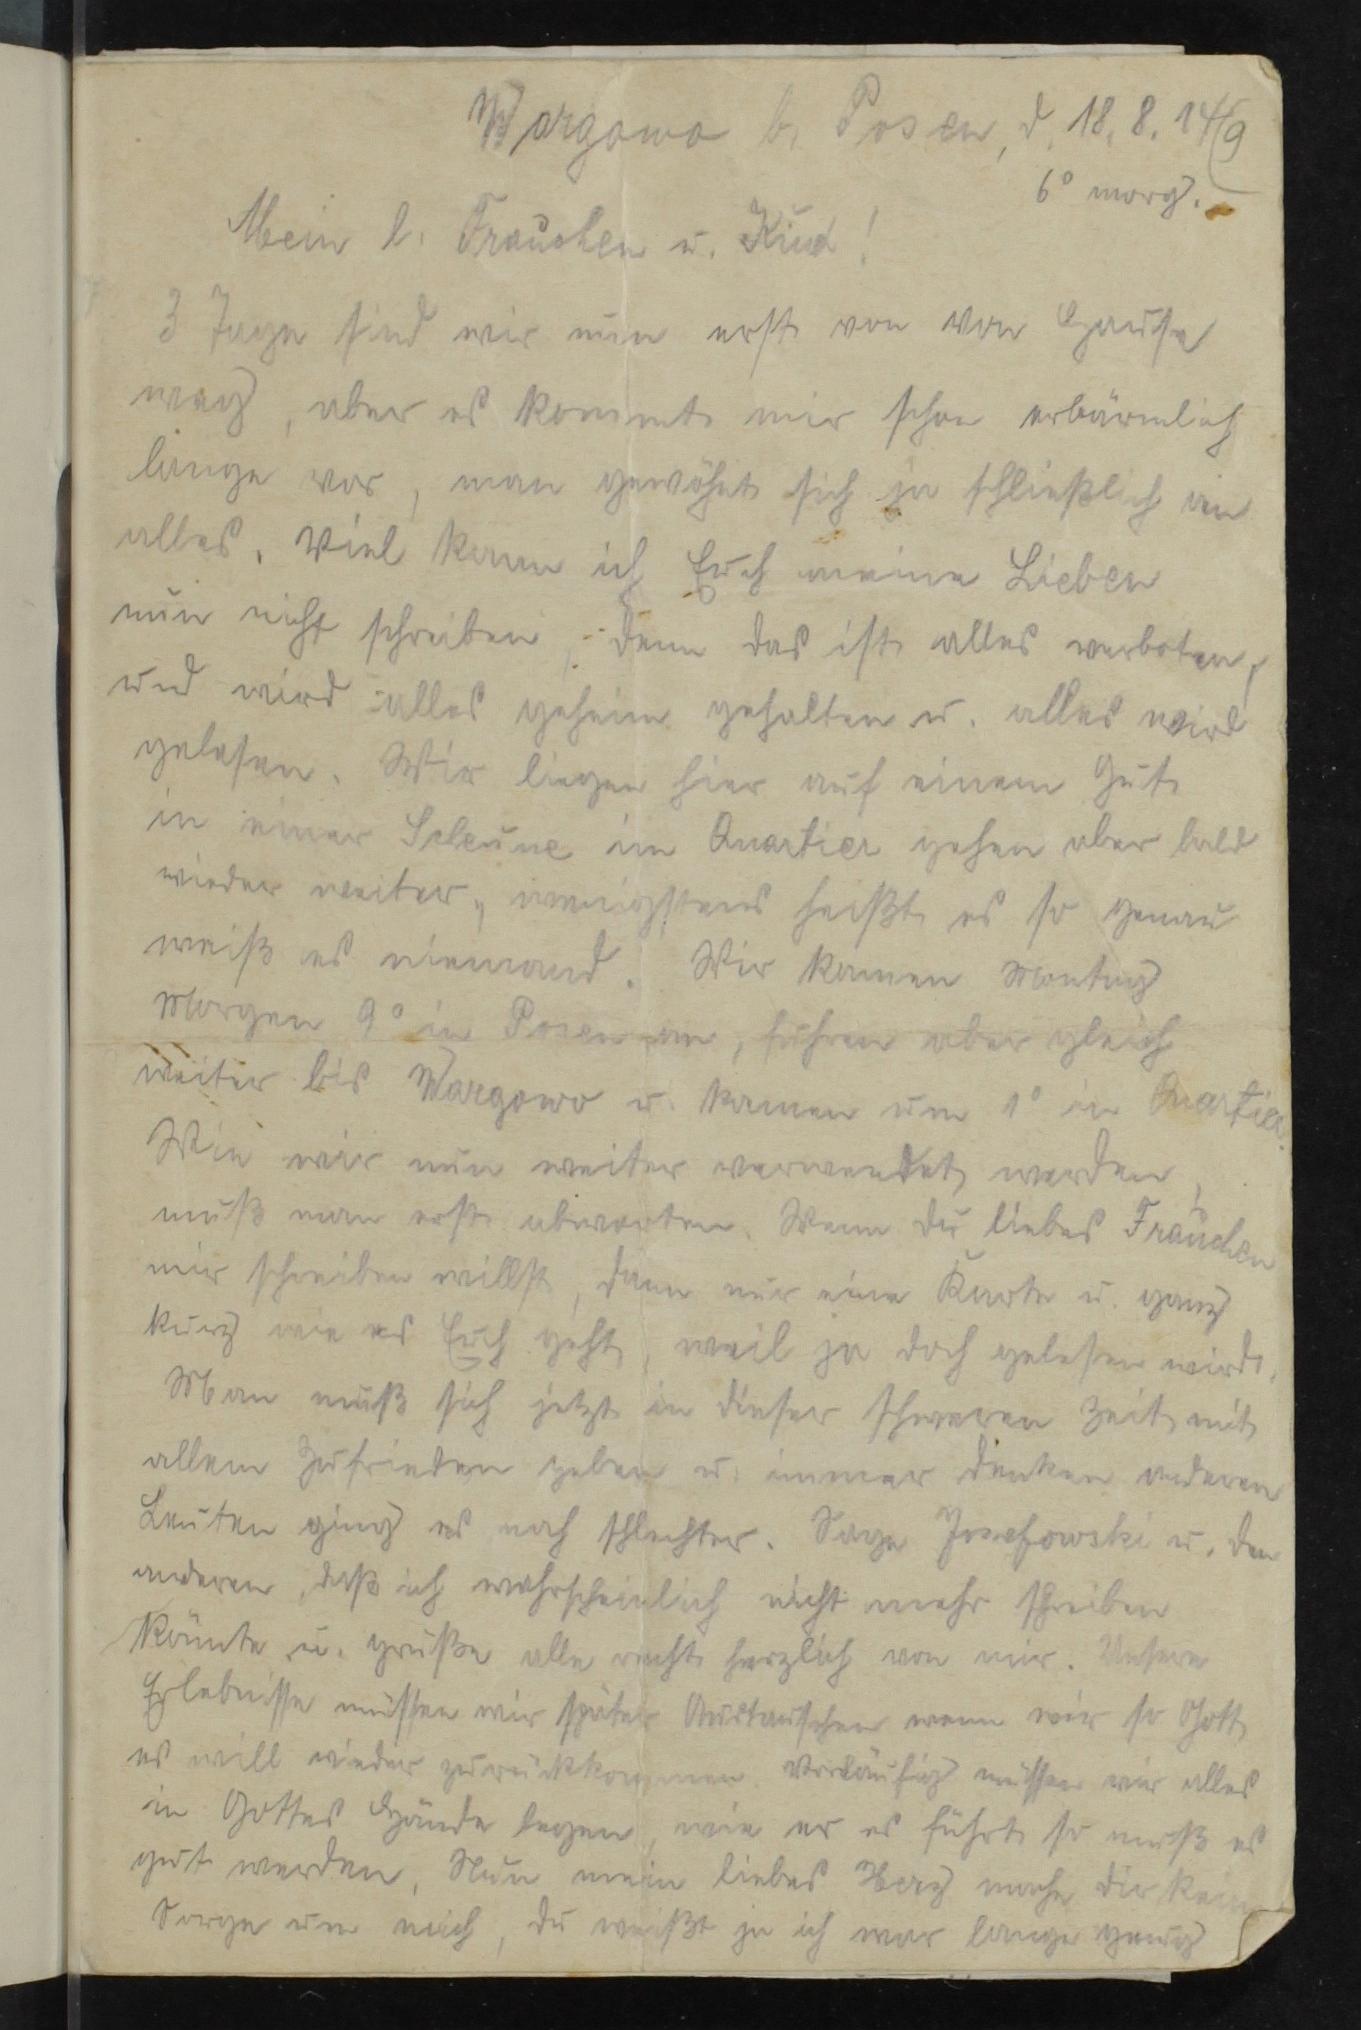 Wargowo b. Posen, d. 18. 8. 14/9
6° morg.
Mein l. Frauchen u. Kind!
3 Tage sind wir nun erst von von Hause
weg, aber es kommt mir schon erbärmlich
lange vor, man gewöhnt sich ja schließlich an
alles. Viel kann ich Euch meine Lieben
nun nicht schreiben, denn das ist alles verboten,
und wird alles geheim gehalten u. alles wird
gelesen. Wir liegen hier auf einem Gut
in einer Scheune im Quartier gehen aber bald
wieder weiter, wenigstens heißt es so genau
weiß es niemand. Wir kamen Montag
Morgen 9° in Posen an, fuhren aber gleich
weiter bis Wargowo u. kamen um 1° in Quartier.
Wie wir nun weiter verwendet werden,
muß man erst abwarten. Wenn du liebes Frauchen
mir schreiben willst, dann nur eine Karte u. ganz
kurz wie es Euch geht, weil ja doch gelesen wird.
Man muß sich jetzt in dieser schweren Zeit mit
allem zufrieden geben u. immer denken anderen
Leuten ging es noch schlechter. Sage Josefowski u. den
anderen, daß ich wahrscheinlich nicht mehr schreiben
könnte u. grüße alle recht herzlich von mir. Unsere
Erlebnisse müssen wir später Austauschen wenn wir so Gott
es will wieder zurückkommen. Vorläufig müssen wir alles
in Gottes Hände legen, wie er es führt so muß es
gut werden. Nun mein liebes Herz mache dir kein
Sorge um mich, du weißt ja ich war lange genug